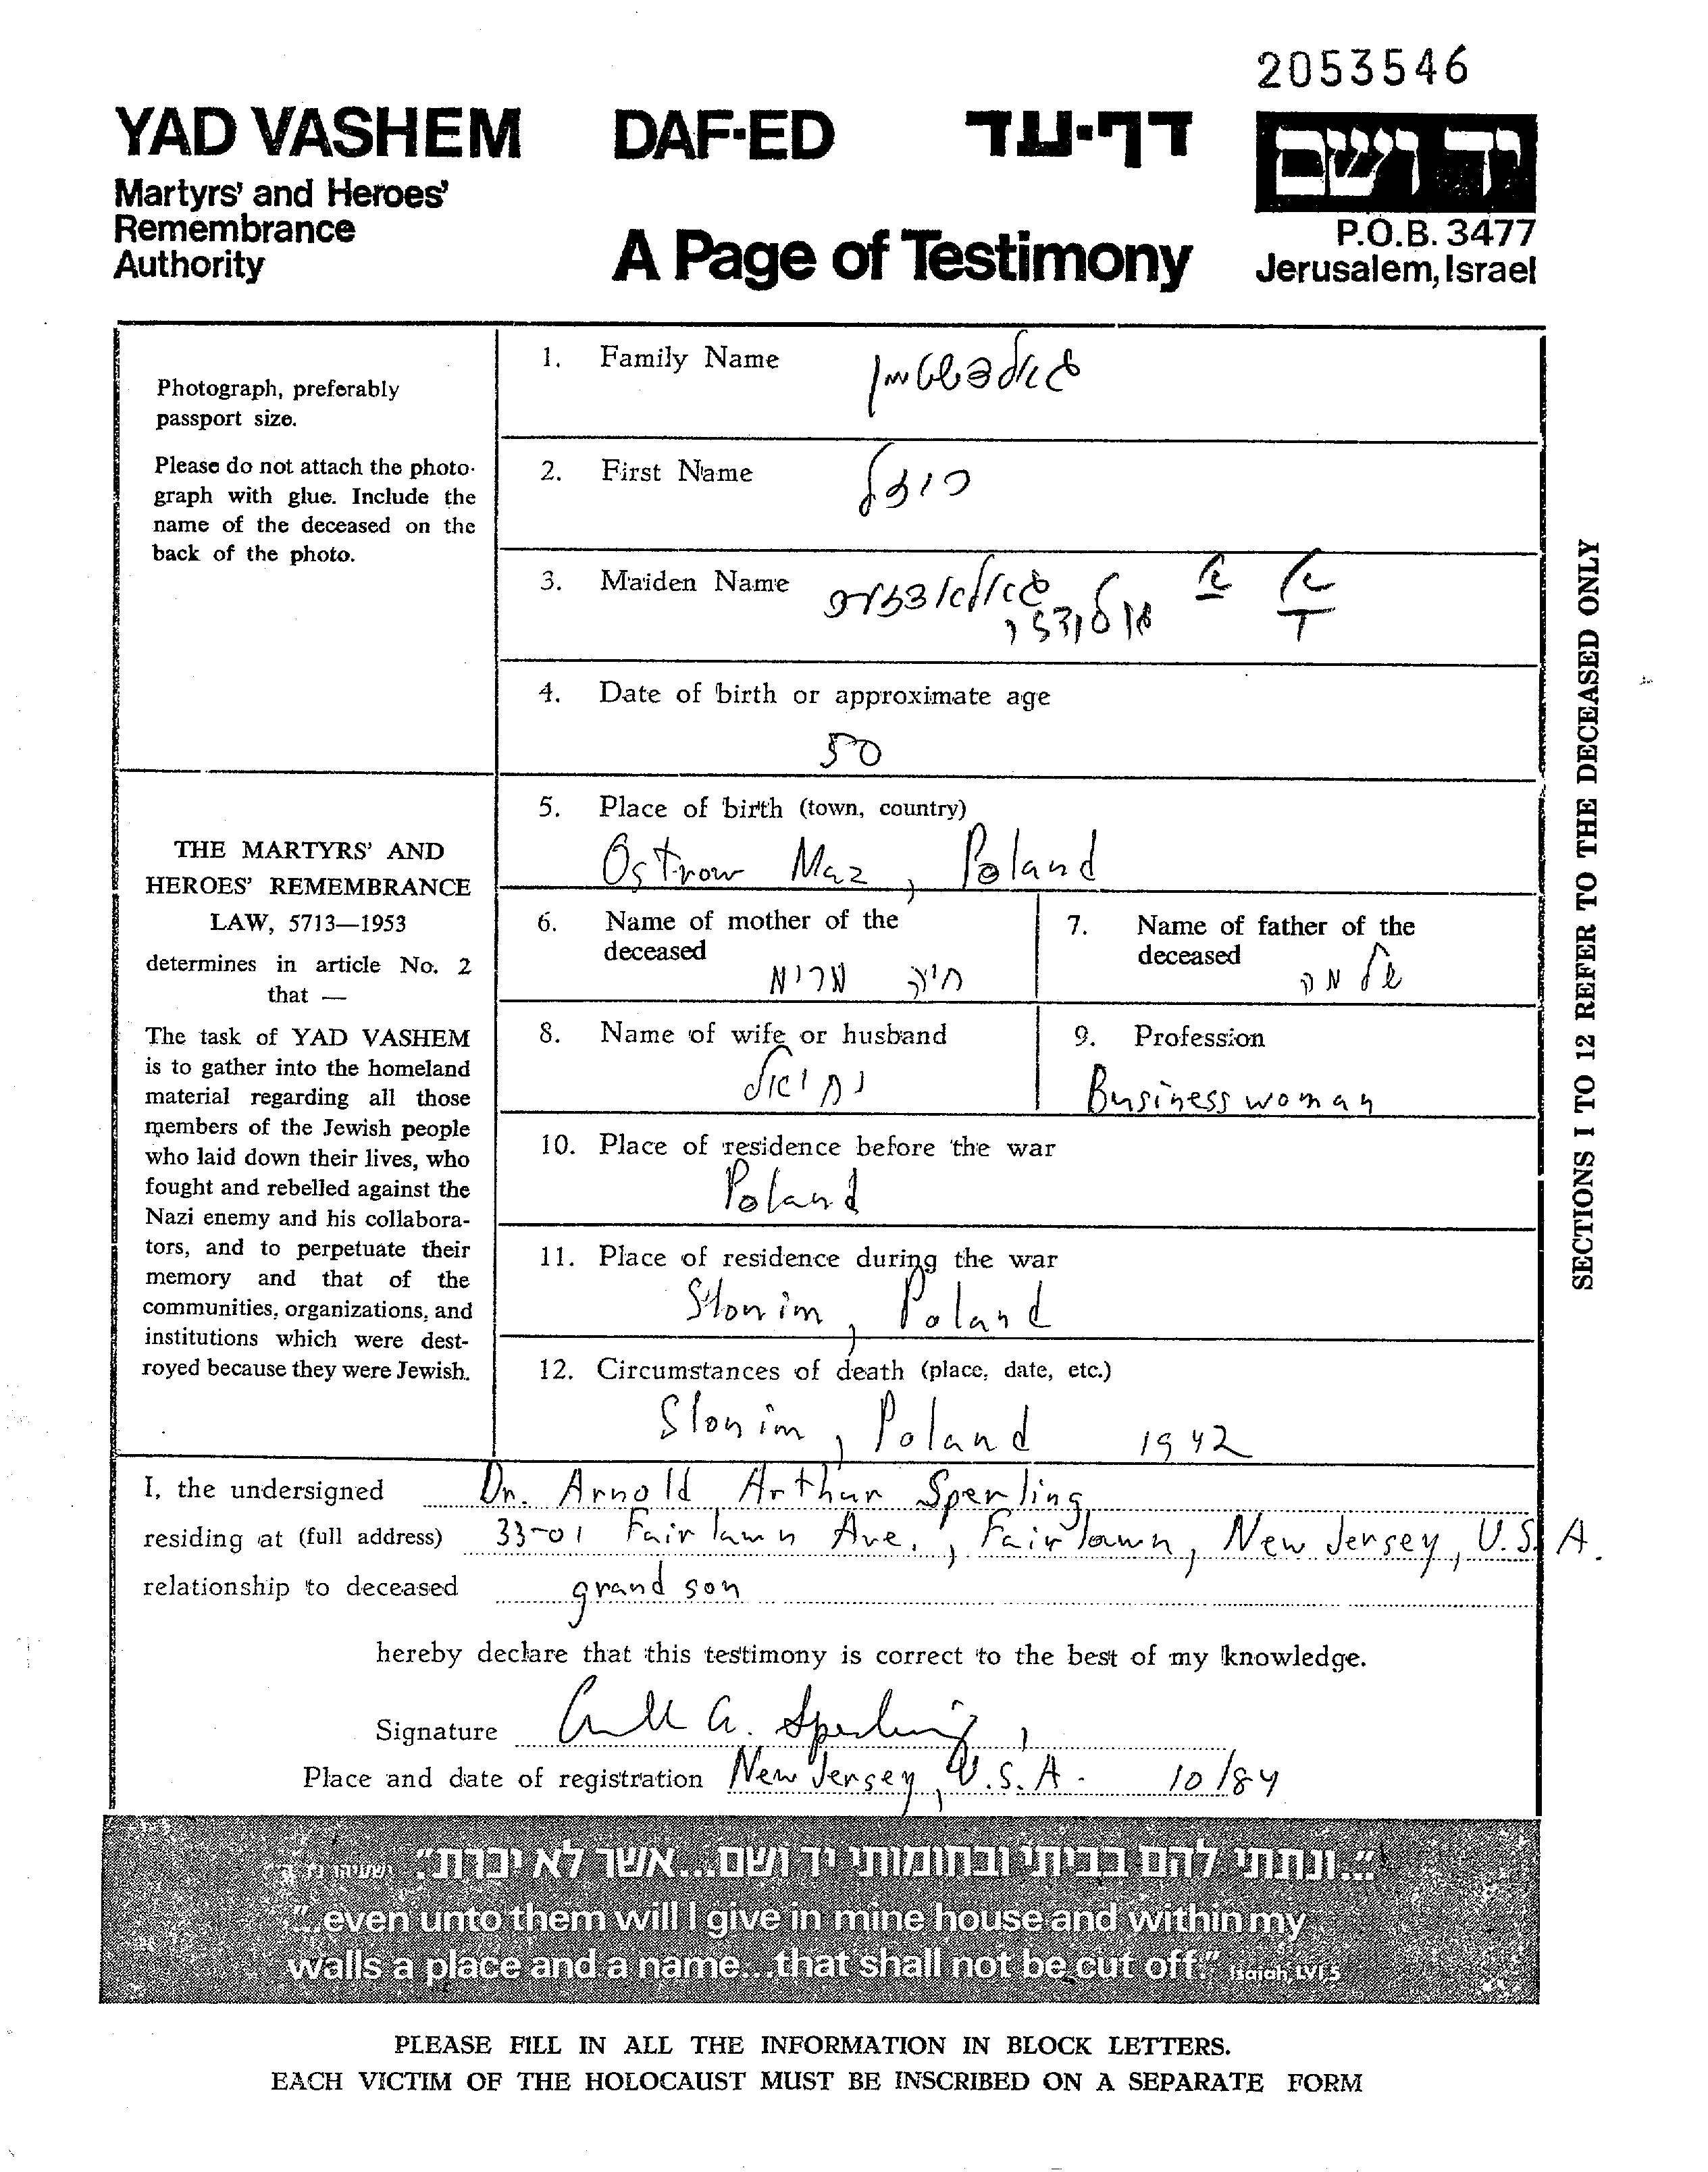 2053546
YAD VASHEM DAF-ED דף-עד יד ושם
Martyrs' and Heroes'
Remembrance
Authority
A Page of Testimony
P.O.B. 3477
Jerusalem, Israel
Photograph, preferably
passport size.
Please do not attach the photo-
graph with glue. Include the
name of the deceased on the
back of the photo.
THE MARTYRS' AND
HEROES' REMEMBRANCE
LAW, 5713—1953
determines in article No. 2
that —
The task of YAD VASHEM
is to gather into the homeland
material regarding all those
members of the Jewish people
who laid down their lives, who
fought and rebelled against the
Nazi enemy and his collabora-
tors, and to perpetuate their
memory and that of the
communities, organizations, and
institutions which were dest-
royed because they were Jewish.
1. Family Name
2. First Name
3. Maiden Name
4. Date of birth or approximate age
50
5. Place of birth (town, country)
Ostrow Maz, Poland
6. Name of mother of the
deceased
חיה מרים
7. Name of father of the
deceased
שלמה
8. Name of wife or husband
9. Profession
Business woman
10. Place of residence before the war
Poland
11. Place of residence during the war
Slonim, Poland
12. Circumstances of death (place, date, etc.)
Slonim, Poland 1942
SECTIONS 1 TO 12 REFER TO THE DECEASED ONLY
I, the undersigned Dr. Arnold Arthur Sperling
residing at (full address) 33-01 Fair lawn Ave., Fair lawn, New Jersey, U.S.A.
relationship to deceased grand son
hereby declare that this testimony is correct to the best of my knowledge.
Signature A. Sperling
Place and date of registration New Jersey, U.S.A. 10/84
"...ונתתי להם בביתי ובחומותי יד ושם...אשר לא יכרת". ישעיהו נ"ו ה'
"...even unto them will I give in mine house and within my
walls a place and a name...that shall not be cut off." Isaiah, LVI, 5
PLEASE FILL IN ALL THE INFORMATION IN BLOCK LETTERS.
EACH VICTIM OF THE HOLOCAUST MUST BE INSCRIBED ON A SEPARATE FORM